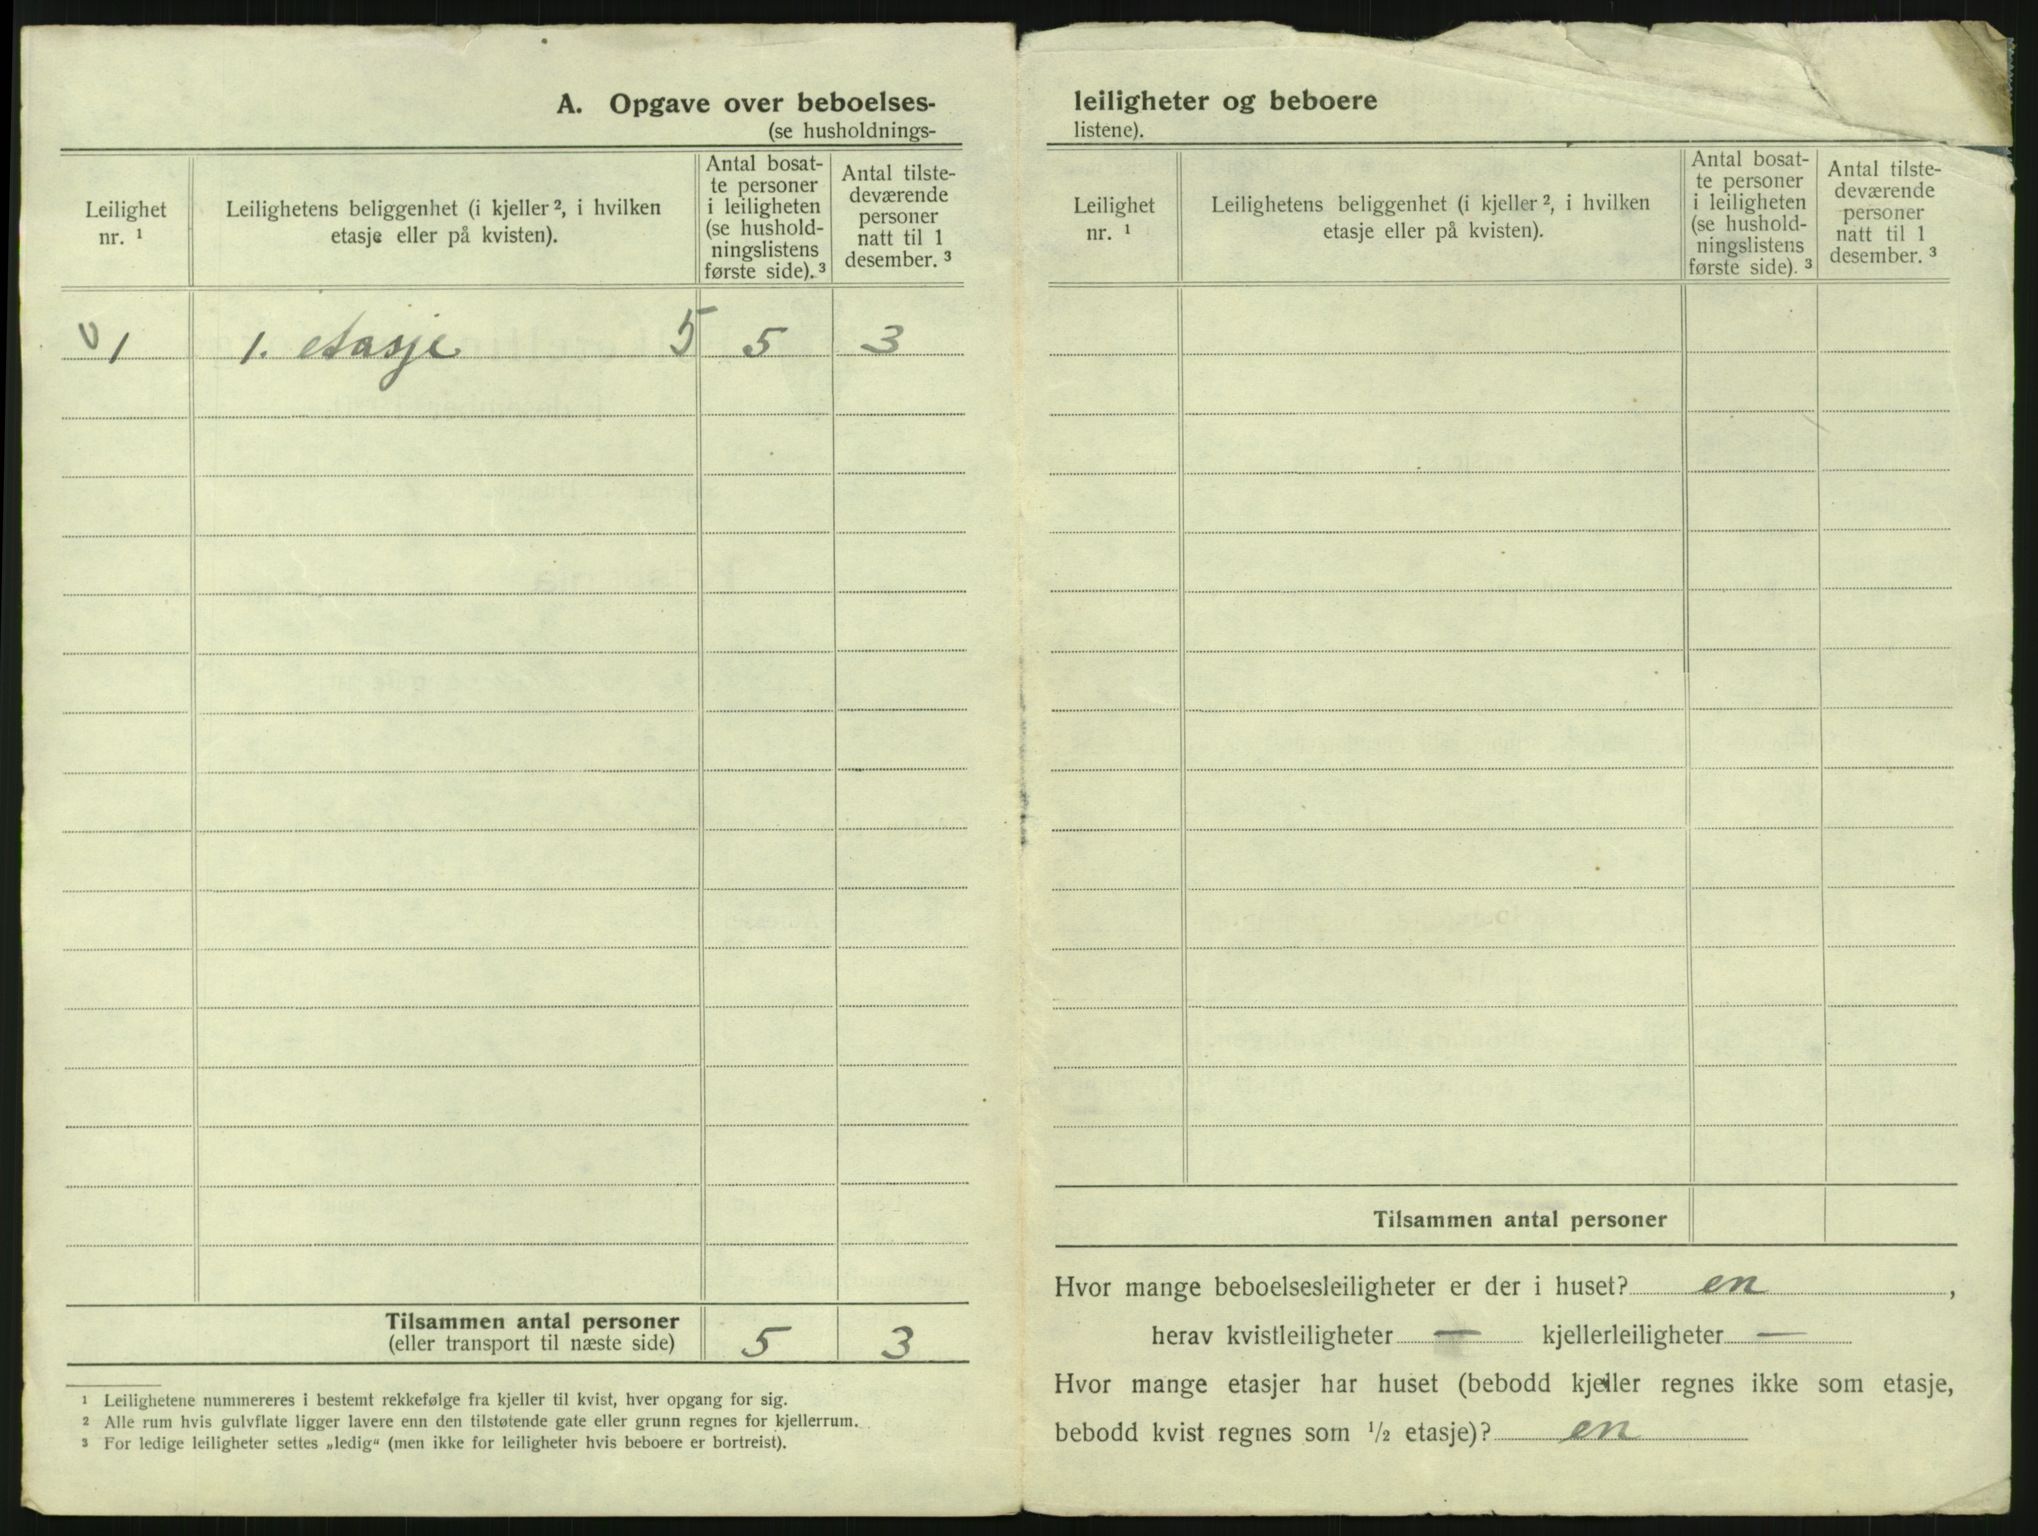 A. Opgave over beboelses-
(se husholdnings-
Leilighet nr. ¹
Leilighetens beliggenhet (i kjeller ², i hvilken
etasje eller på kvisten).
Antal bosat-
te personer
i leiligheten
(se hushold-
ningslistens
første side). ³
Antal tilste-
deværende
personer
natt til 1
desember. ³
1 1. etasje 5 5 3
Tilsammen antal personer
(eller transport til næste side) 5 3
¹ Leilighetene nummereres i bestemt rekkefølge fra kjeller til kvist, hver opgang for sig.
² Alle rum hvis gulvflate ligger lavere enn den tilstøtende gate eller grunn regnes for kjellerrum.
³ For ledige leiligheter settes „ledig“ (men ikke for leiligheter hvis beboere er bortreist).
leiligheter og beboere
listene).
Leilighet nr. ¹
Leilighetens beliggenhet (i kjeller ², i hvilken
etasje eller på kvisten).
Antal bosat-
te personer
i leiligheten
(se hushold-
ningslistens
første side). ³
Antal tilste-
deværende
personer
natt til 1
desember. ³
Tilsammen antal personer
Hvor mange beboelsesleiligheter er der i huset? en ,
herav kvistleiligheter — kjellerleiligheter —
Hvor mange etasjer har huset (bebodd kjeller regnes ikke som etasje,
bebodd kvist regnes som ½ etasje)? en